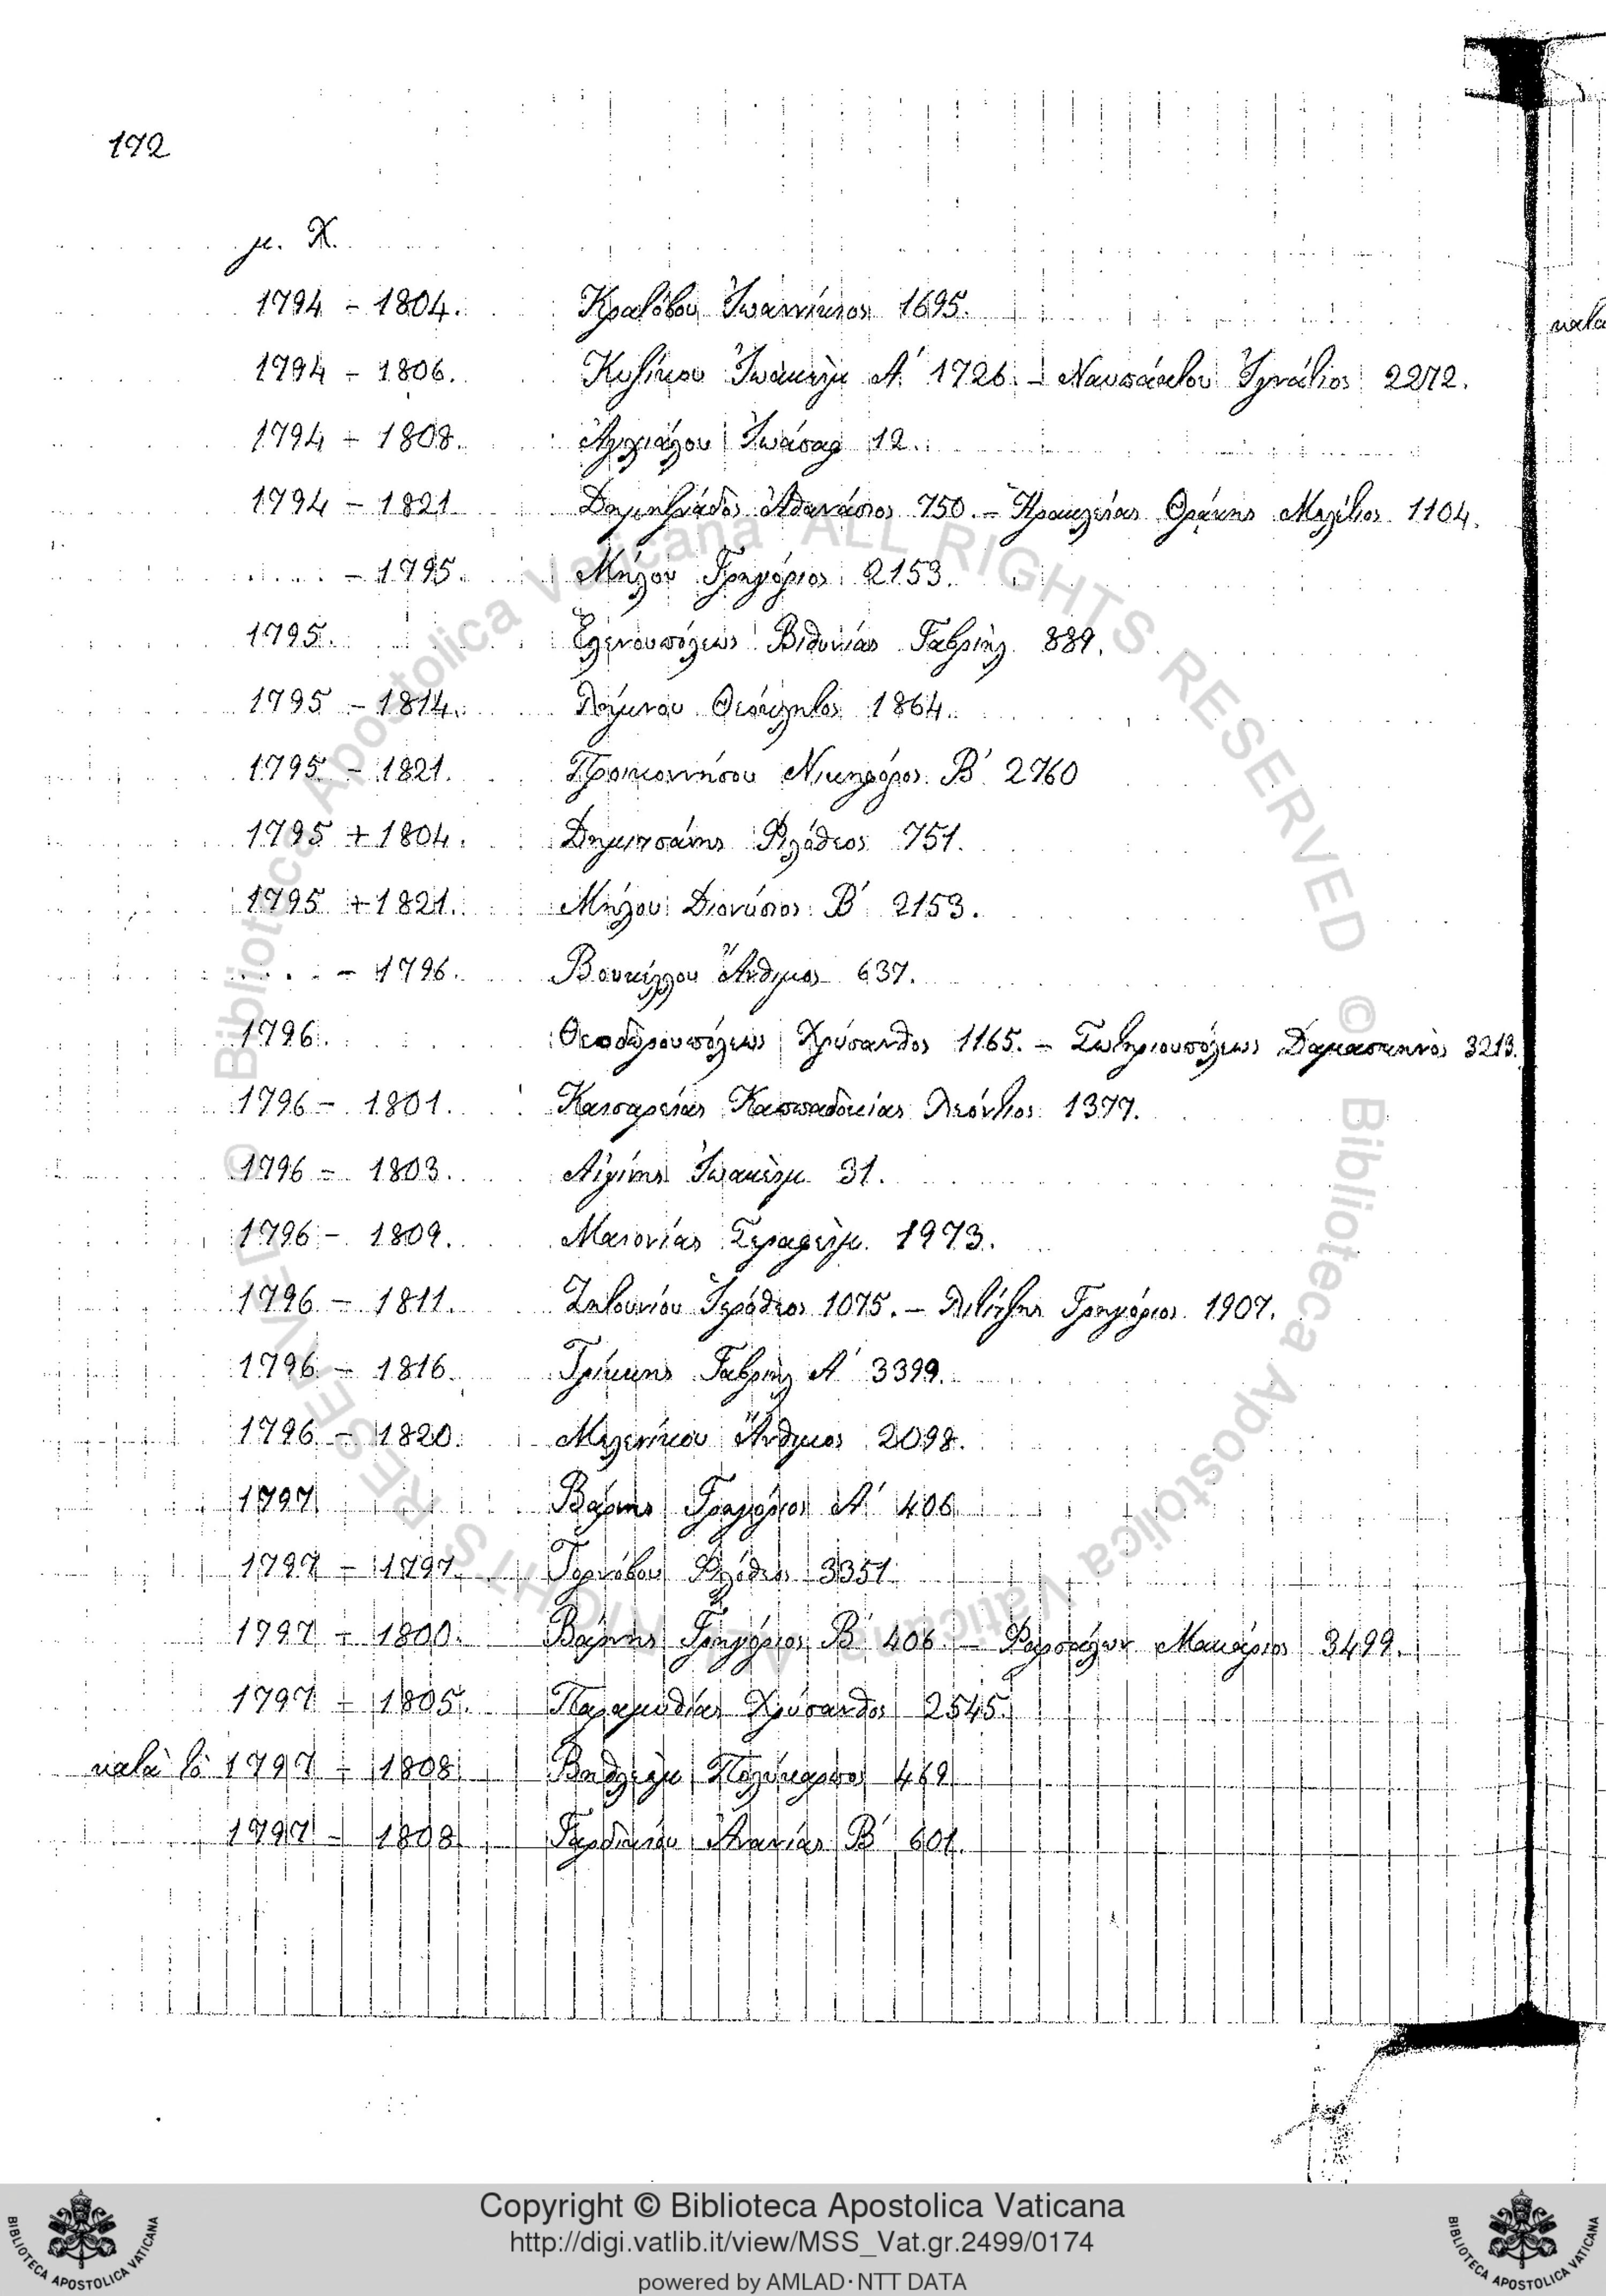 172
μ. Χ.
1794 - 1804. Κρατόβου Ἰωαννίκιος 1695.
1794 - 1806. Κυζίκου Ἰωακεὶμ Α΄ 1726. - Ναυπάκτου Ἰγνάτιος 2272.
1794 - 1808. Ἀγχιάλου Ἰωάσαφ 12.
1794 - 1821 Δημητριάδος Ἀθανάσιος 750. - Ἡρακλείας Θράκης Μελέτιος 1104.
..... - 1795. Μήλου Γρηγόριος 2153.
1795. Ἑλενουπόλεως Βιθυνίας Γαβριὴλ 889.
1795 - 1814. Λήμνου Θεόκλητος 1864.
1795 - 1821. Προικοννήσου Νικηφόρος Β΄ 2760
1795 + 1804. Δημητσάνης Φιλόθεος 751.
1795 + 1821. Μήλου Διονύσιος Β΄ 2153.
..... - 1796. Βουκέλλου Ἄνθιμος 637.
1796. Θεοδωρουπόλεως Χρύσανθος 1165. - Σωτηριουπόλεως Δαμασκηνὸς 3213.
1796 - 1801. Καισαρείας Καππαδοκίας Λεόντιος 1377.
1796 - 1803. Αἰγίνης Ἰωακεὶμ 31.
1796 - 1809. Μαιονίας Σεραφεὶμ 1973.
1796 - 1811. Ζητουνίου Ἱερόθεος 1075. - Λιτίτζης Γρηγόριος 1907.
1796 - 1816. Τρίκκης Γαβριὴλ Α΄ 3399.
1796 - 1820. Μελενίκου Ἄνθιμος 2098.
1797 Βάρνης Γρηγόριος Α΄ 406
1797 - 1797. Τορνόβου Φιλόθεος 3351.
1797 - 1800. Βάρνης Γρηγόριος Β΄ 406 - Φαρσάλων Μακάριος 3499.
1797 - 1805. Παραμυθίας Χρύσανθος 2545.
κατὰ τὸ 1797 - 1808 Βηθλεὲμ Πολύκαρπος 469
1797 - 1808 Γαρδικίου Ἀνανίας Β΄ 601.
Copyright © Biblioteca Apostolica Vaticana
http://digi.vatlib.it/view/MSS_Vat.gr.2499/0174
powered by AMLAD·NTT DATA
© Biblioteca Apostolica Vaticana ALL RIGHTS RESERVED
© Biblioteca Apostolica Vaticana ALL RIGHTS RESERVED
BIBLIOTECA APOSTOLICA VATICANA
BIBLIOTECA APOSTOLICA VATICANA